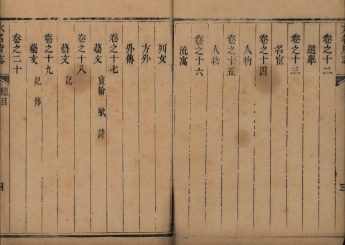 卷之十二
選舉
卷之十三
名宦
卷之十四
人物
卷之十五
人物
卷之十六
流寓
列女
方外
外傳
卷之十七
藝文 宸翰 賦 詩
卷之十八
藝文 記
卷之十九
藝文 記 傳
卷之二十
總目